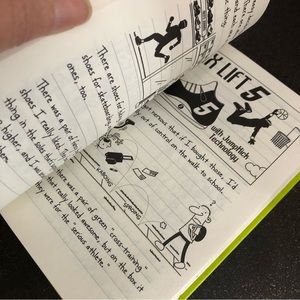 There are shoes for
shoes for skateboarding
ones, too.
There was a pair of
shoes I really liked
thing in the sole
higher, and I was
them.
X LIFT 5
5
with JumpTech
Technology
nervous that if I bought those, I'd
out of control on the walk to school.
SPROING
SPROING
there was a pair of green "cross-training"
that really looked awesome, but on the box it
they were for the "serious athlete."